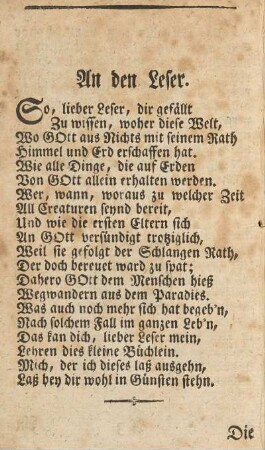 An den Leser.
So, lieber Leser, dir gefällt
Zu wissen, woher diese Welt,
Wo GOtt aus Nichts mit seinem Rath
Himmel und Erd erschaffen hat.
Wie alle Dinge, die auf Erden
Von GOtt allein erhalten werden.
Wer, wann, woraus zu welcher Zeit
All Creaturen seynd bereit,
Und wie die ersten Eltern sich
An GOtt versündigt trotziglich,
Weil sie gefolgt der Schlangen Rath,
Der doch bereuet ward zu spat;
Dahero GOtt dem Menschen hieß
Wegwandern aus dem Paradies.
Was auch noch mehr sich hat begeb'n,
Nach solchem Fall im ganzen Leb'n,
Das kan dich, lieber Leser mein,
Lehren dies kleine Büchlein.
Mich, der ich dieses laß ausgehn,
Laß bey dir wohl in Günsten stehn.
Die